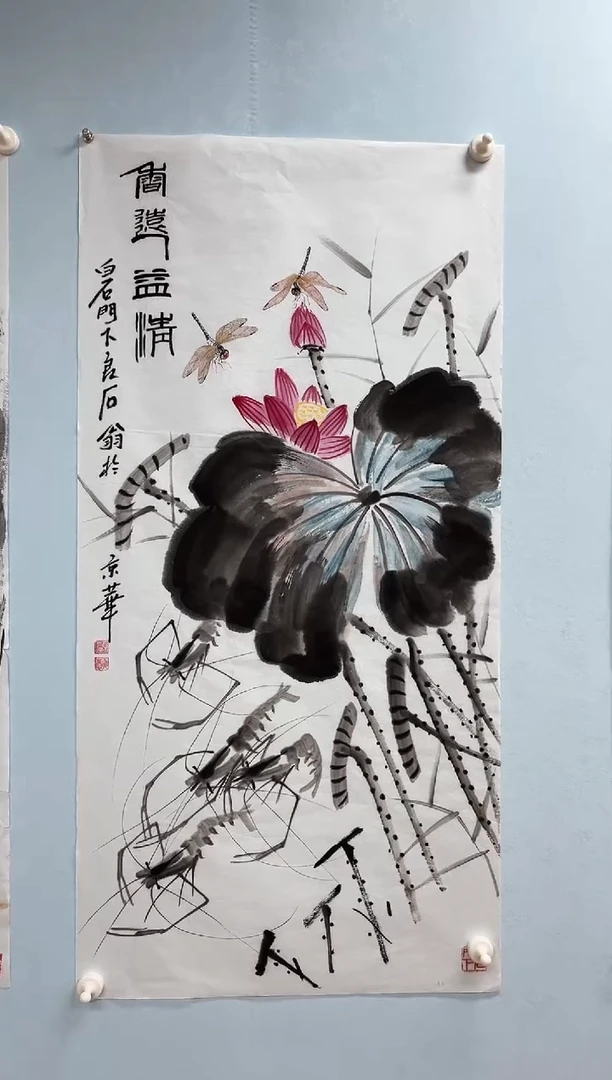 香远益清
白石門下良石翁於
京華